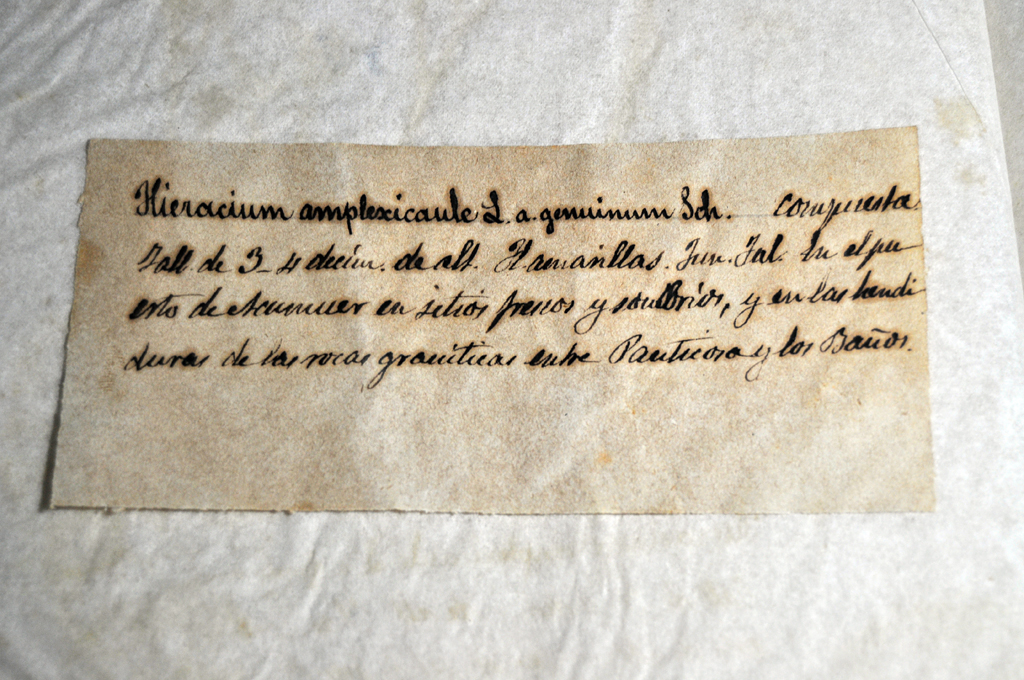 Hieracium amplexicaule L. a. genuinum Sch. Compuesta.
Tall. de 3-4 decím. de alt. Fl. amarillas. Jun. Jul. En el pu
erto de Acumuer en sitios frescos y sombríos, y en las hendi
duras de las rocas graníticas entre Panticosa y los Baños.